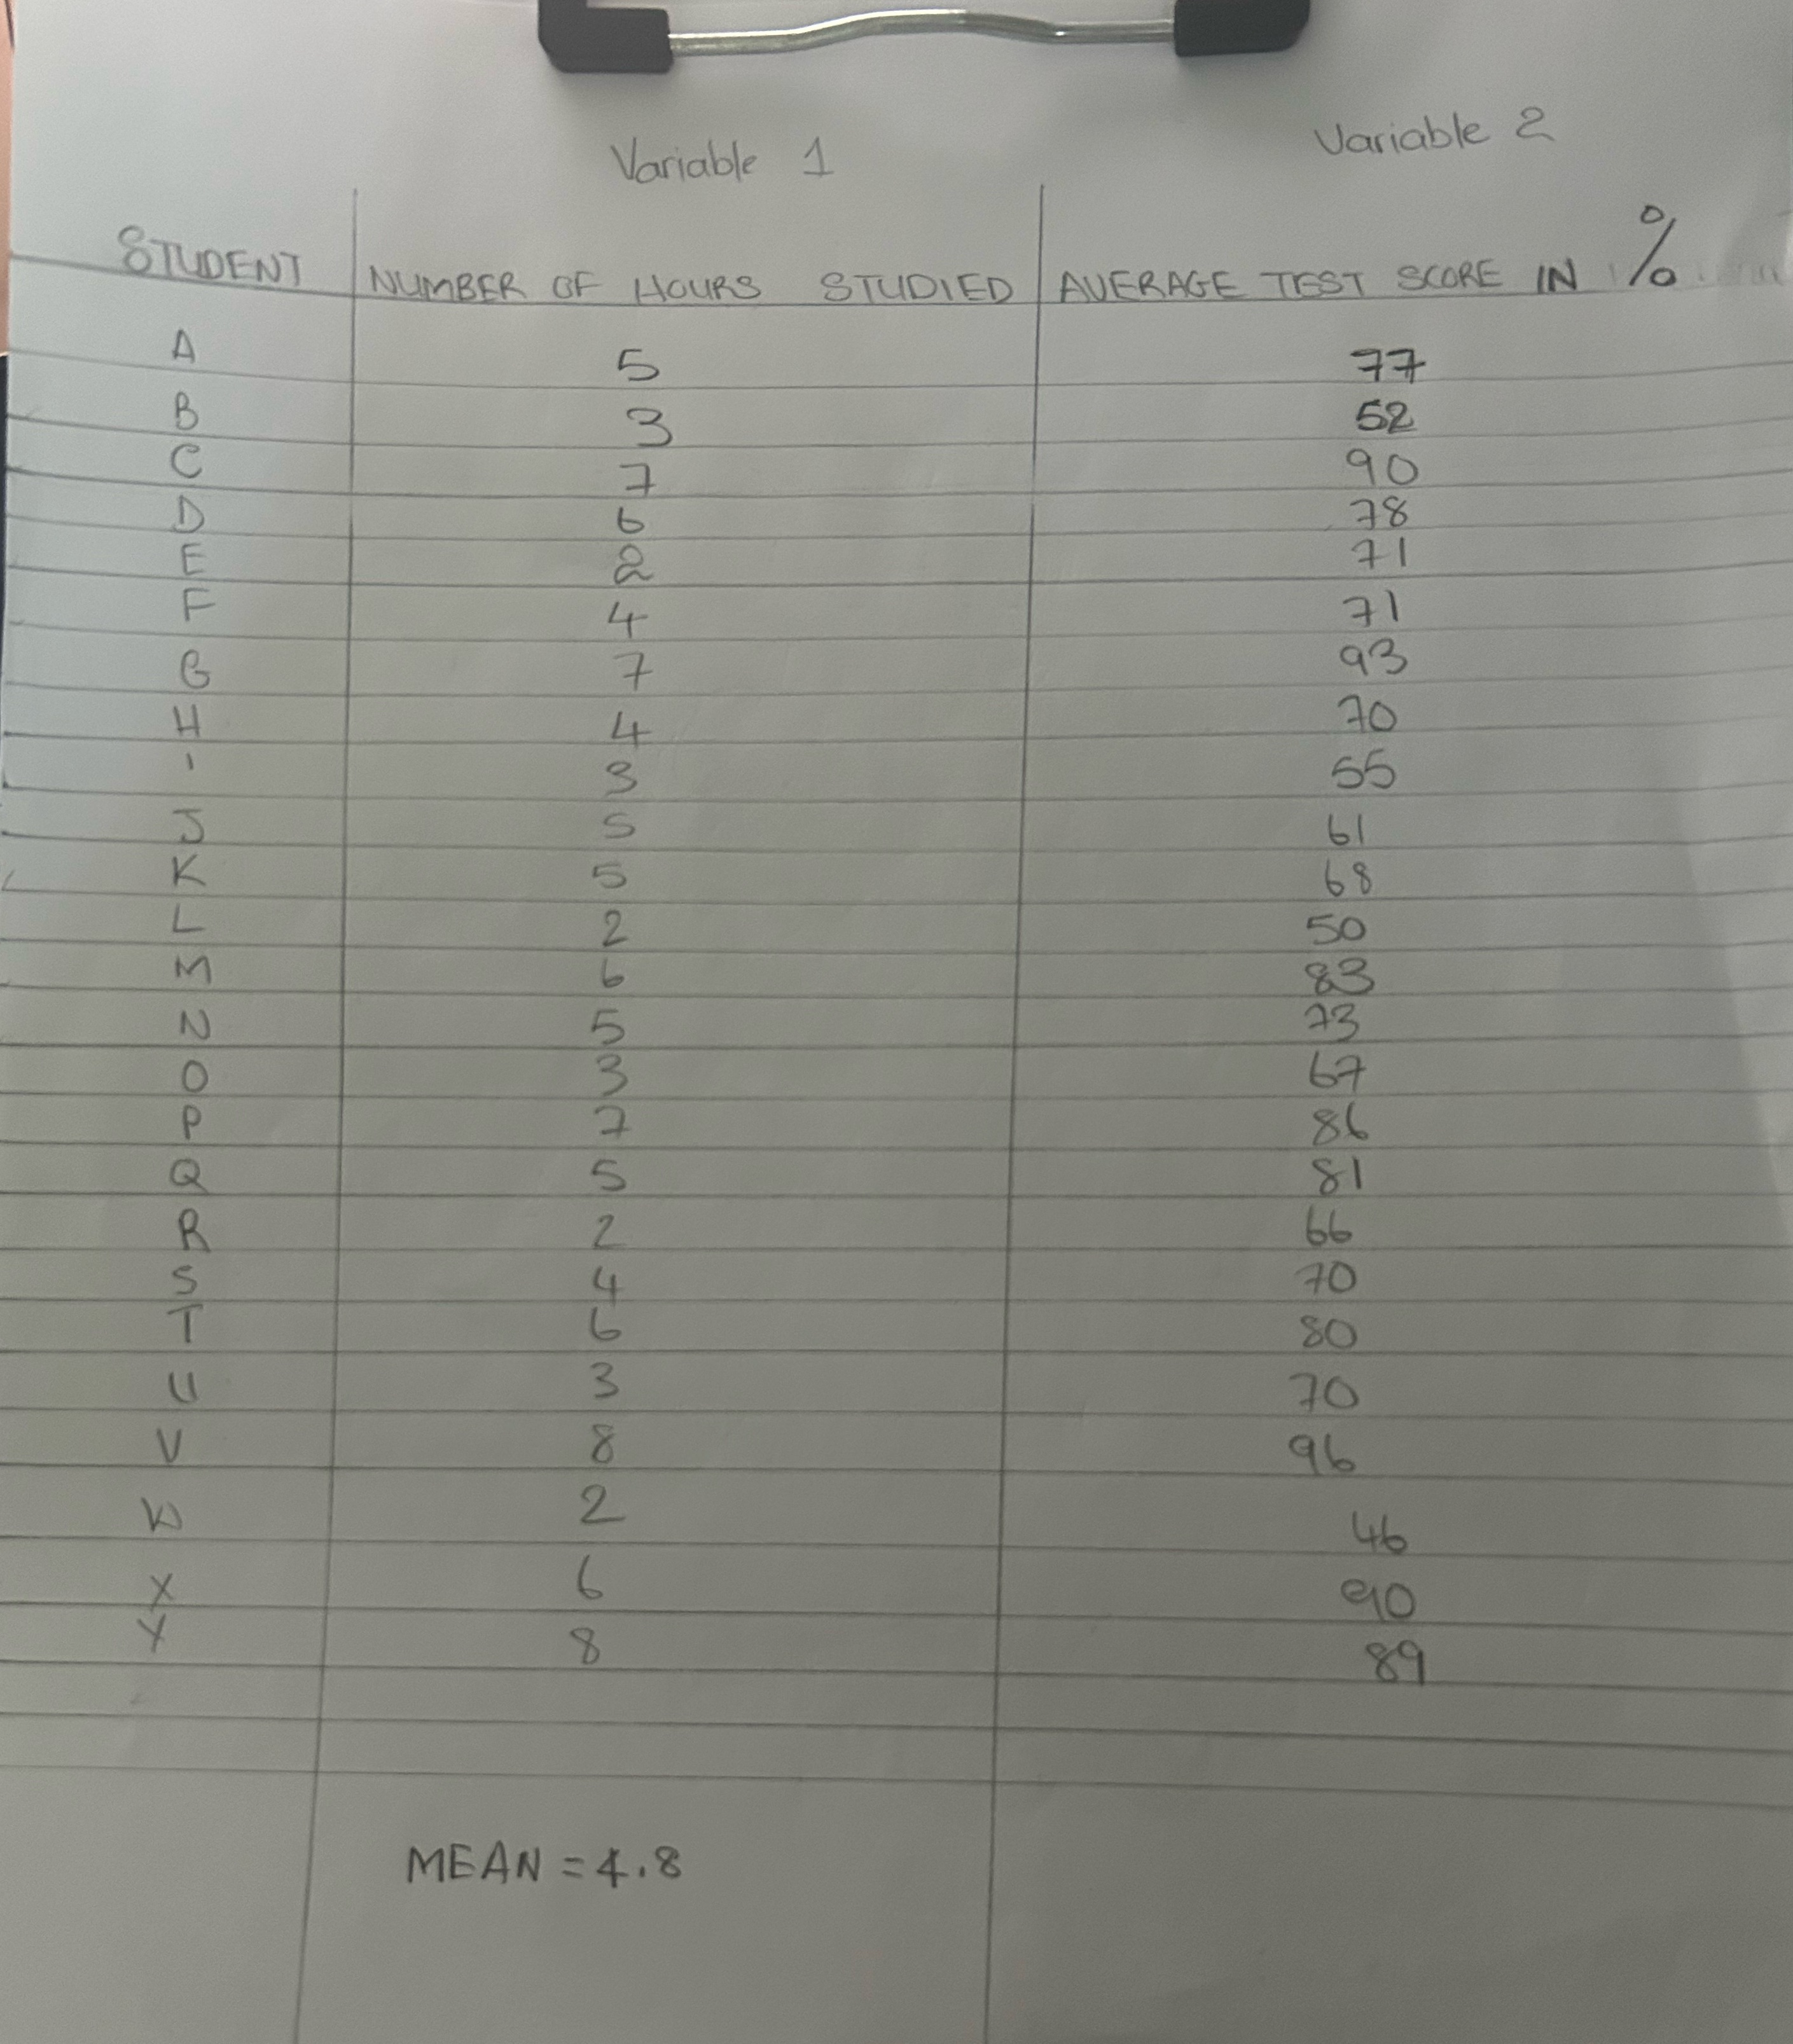 Variable 1 Variable 2
STUDENT NUMBER OF HOURS STUDIED AVERAGE TEST SCORE IN %
A 5 77
B 3 52
C 7 90
D 6 78
E 2 71
F 4 71
G 7 93
H 4 70
I 3 55
J 5 61
K 5 68
L 2 50
M 6 83
N 5 73
O 3 67
P 7 86
Q 5 81
R 2 66
S 4 70
T 6 80
U 3 70
V 8 96
W 2 46
X 6 90
Y 8 89
MEAN = 4.8